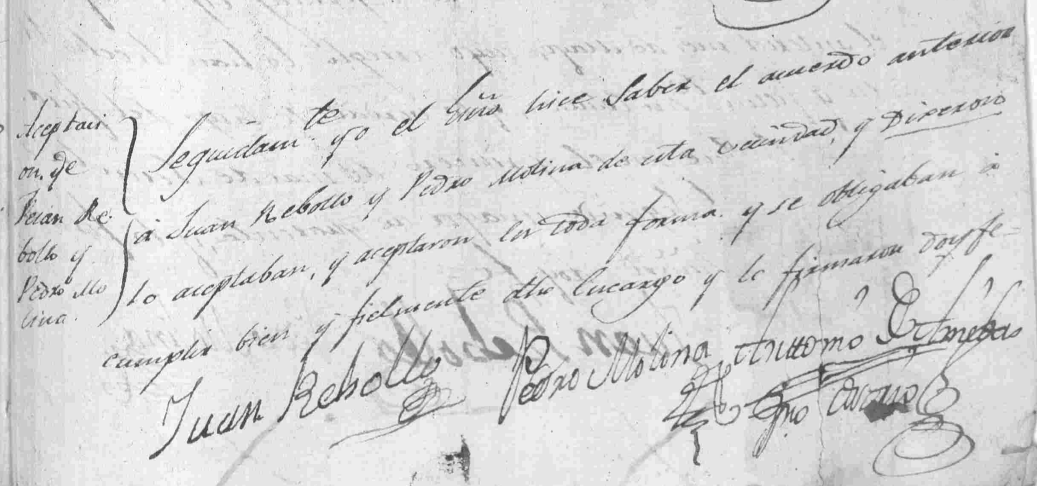 Aceptaci
on. de
Juan Re
bollo y
Pedro Mo
lina.
Seguidamte yo el Essño hice saber el acuerdo anterior
á Juan Rebollo y Pedro Molina de esta Vecindad, y Dixeron
lo aceptaban, y aceptaron en toda forma y se obligaban á
cumplir bien y fielmente dho encargo y lo firmaron doyfe-
Juan Rebollo Pedro Molina Anttonio